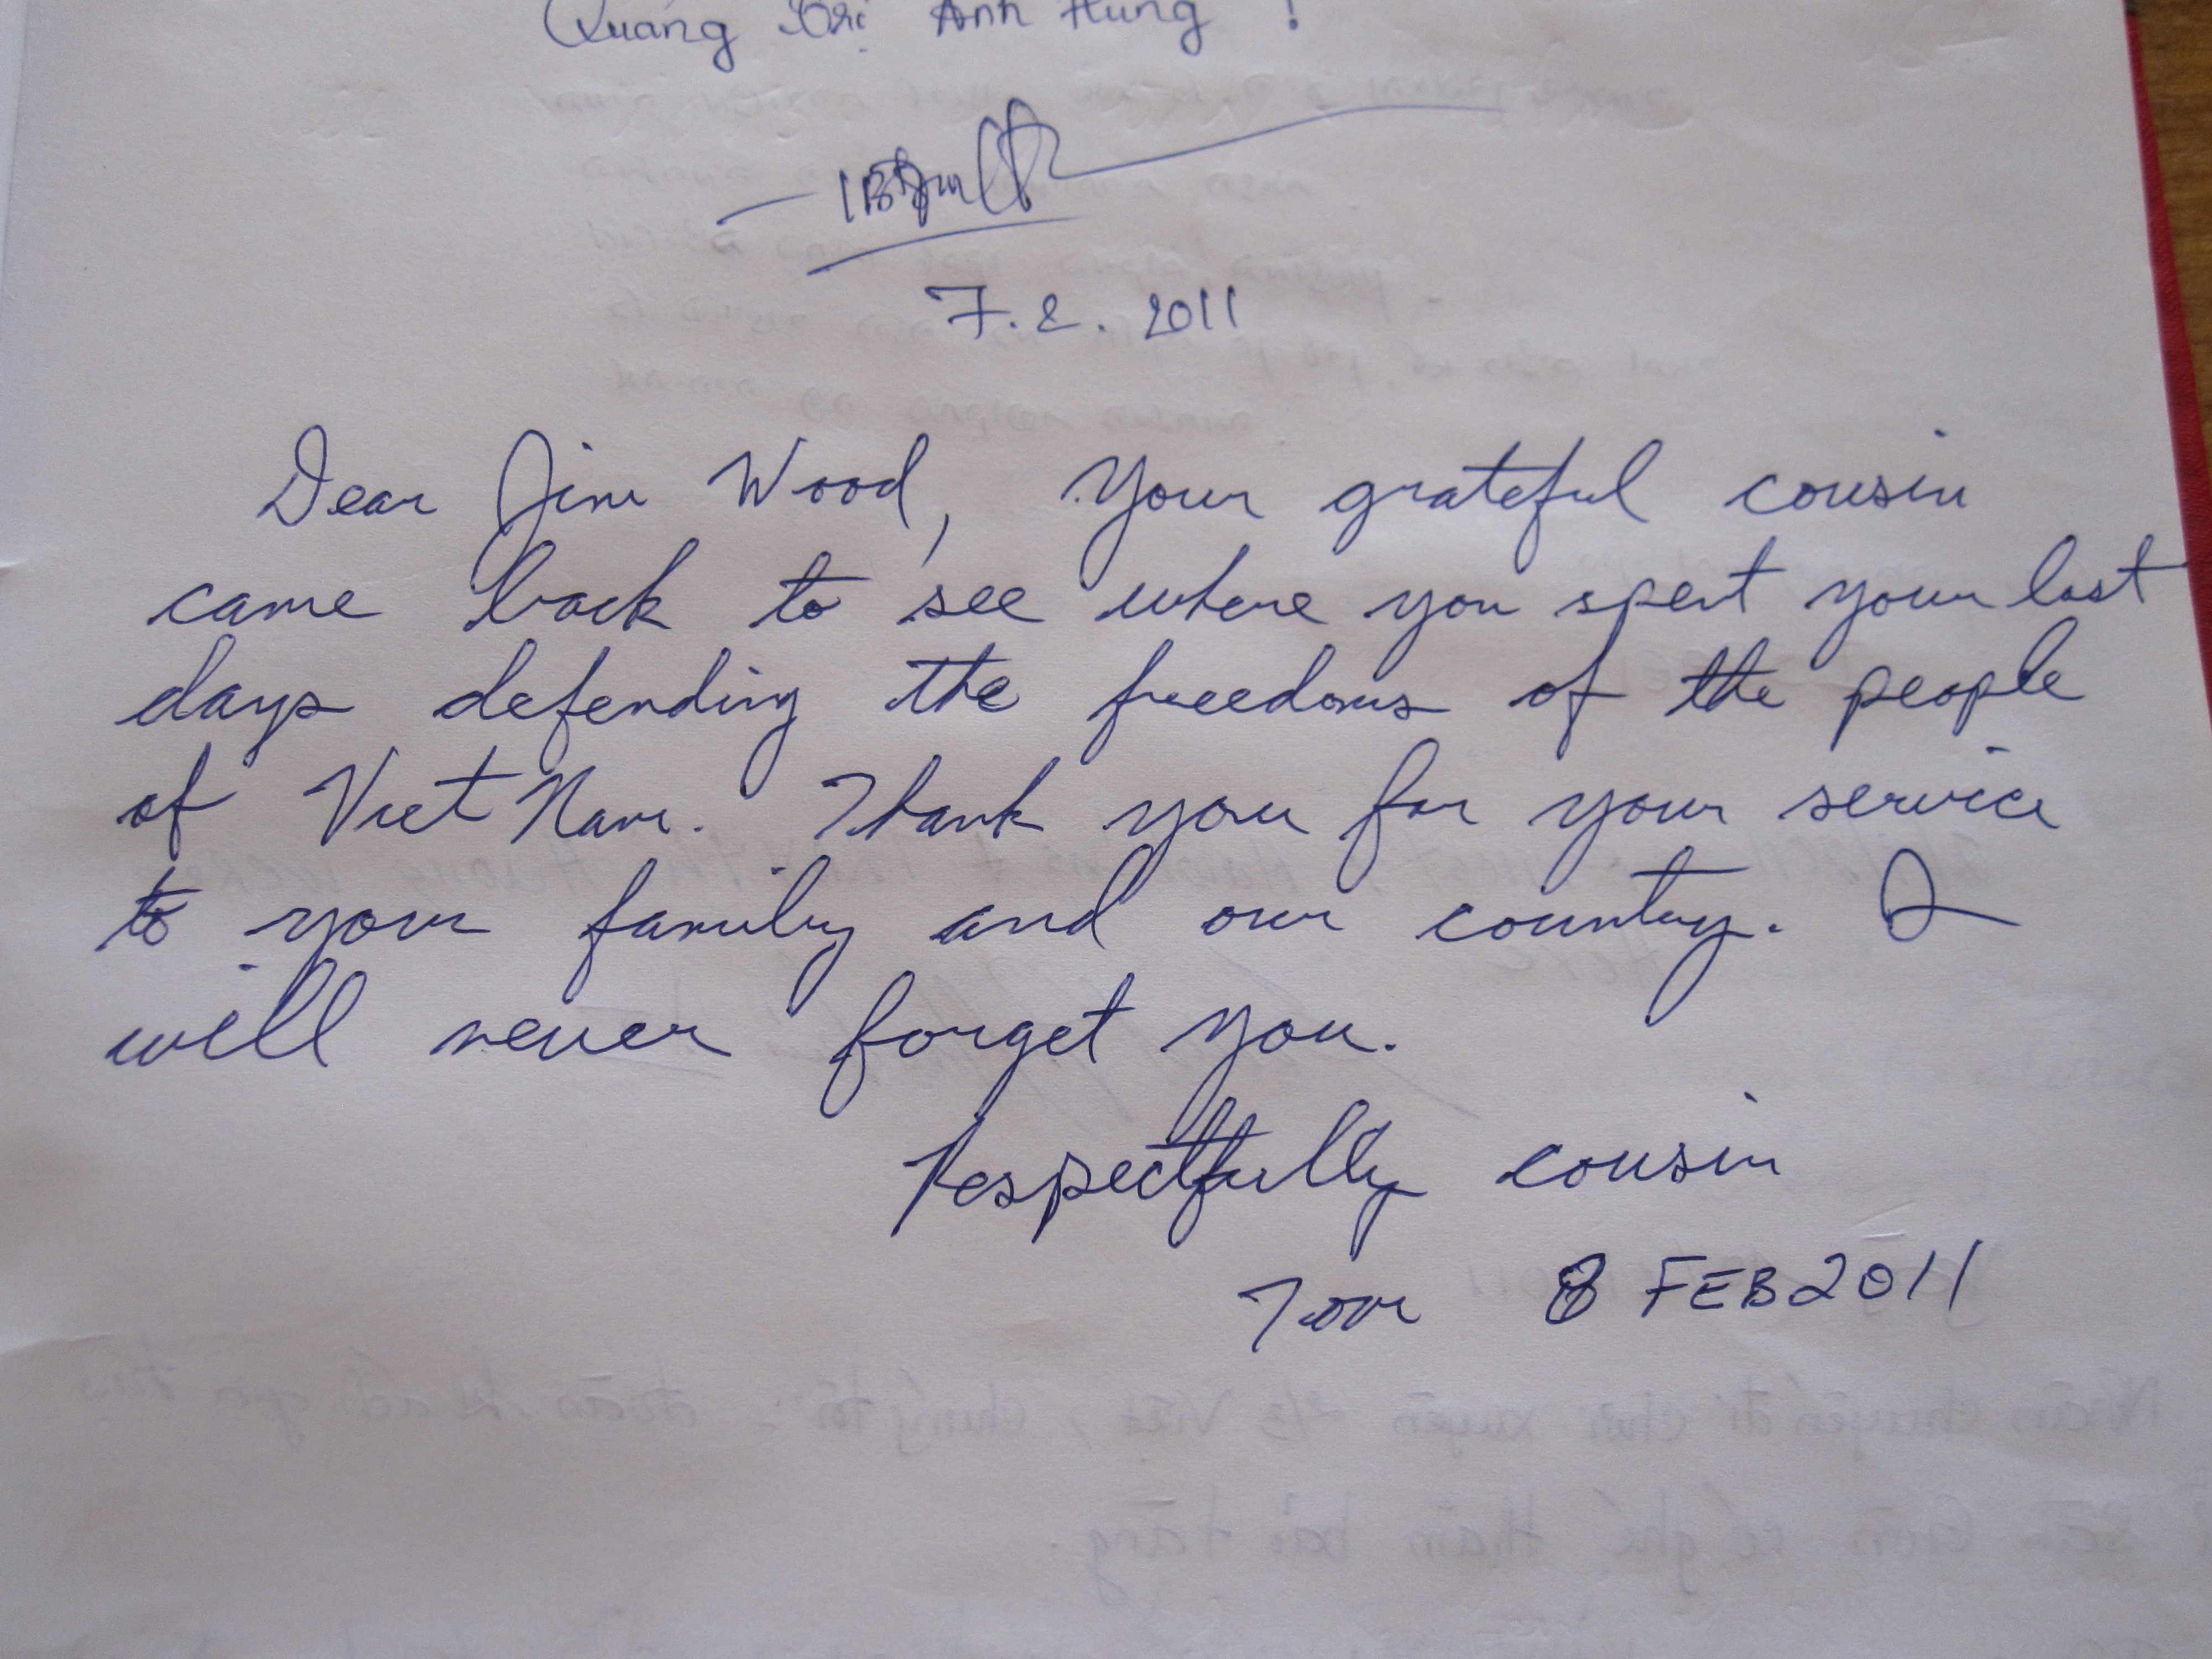 Quảng Trị Anh Hùng !
7.2.2011
Dear Jim Wood, Your grateful cousin
came back to see where you spent your last
days defending the freedoms of the people
of Viet Nam. Thank you for your service
to your family and our country. I
will never forget you.
Respectfully cousin
Tom 8 FEB 2011